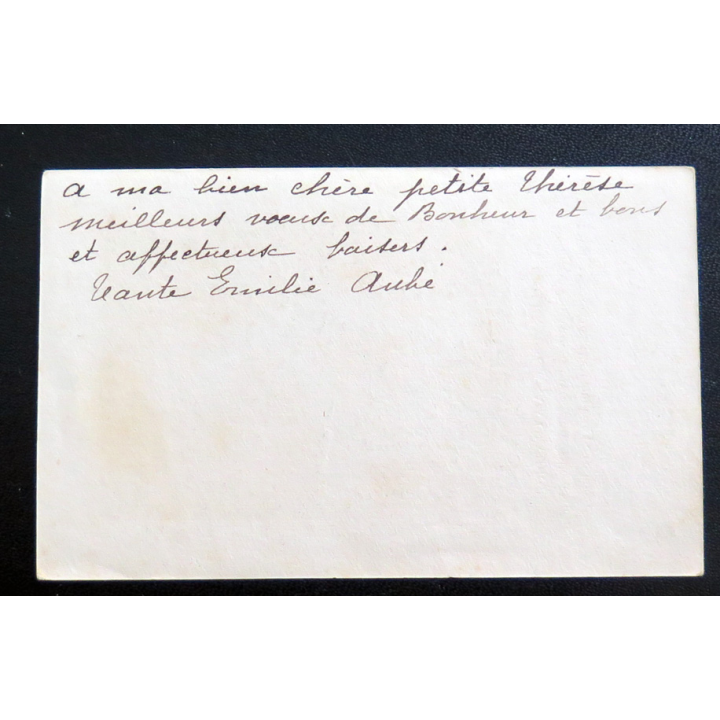 a ma bien chère petite Thérèse
meilleurs voeux de Bonheur et bons
et affectueux baisers.
Tante Emilie Aubé